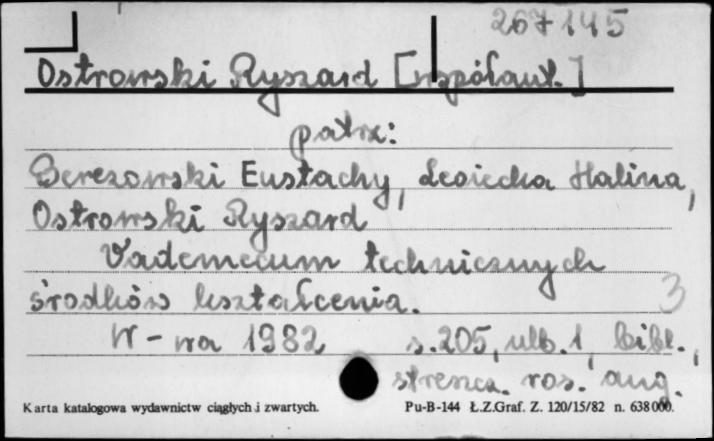 267145
Ostrowski Ryszard [współaut.]
patrz:
Berezowski Eustachy, Lesiecka Halina,
Ostrowski Ryszard
Vademecum technicznych
środków kształcenia.
3
W-wa 1982 s.205, ulb.1, bibl.,
streszcz. ros. ang.
Karta katalogowa wydawnictw ciągłych i zwartych. Pu-B-144 Ł.Z.Graf. Z. 120/15/82 n. 638000.